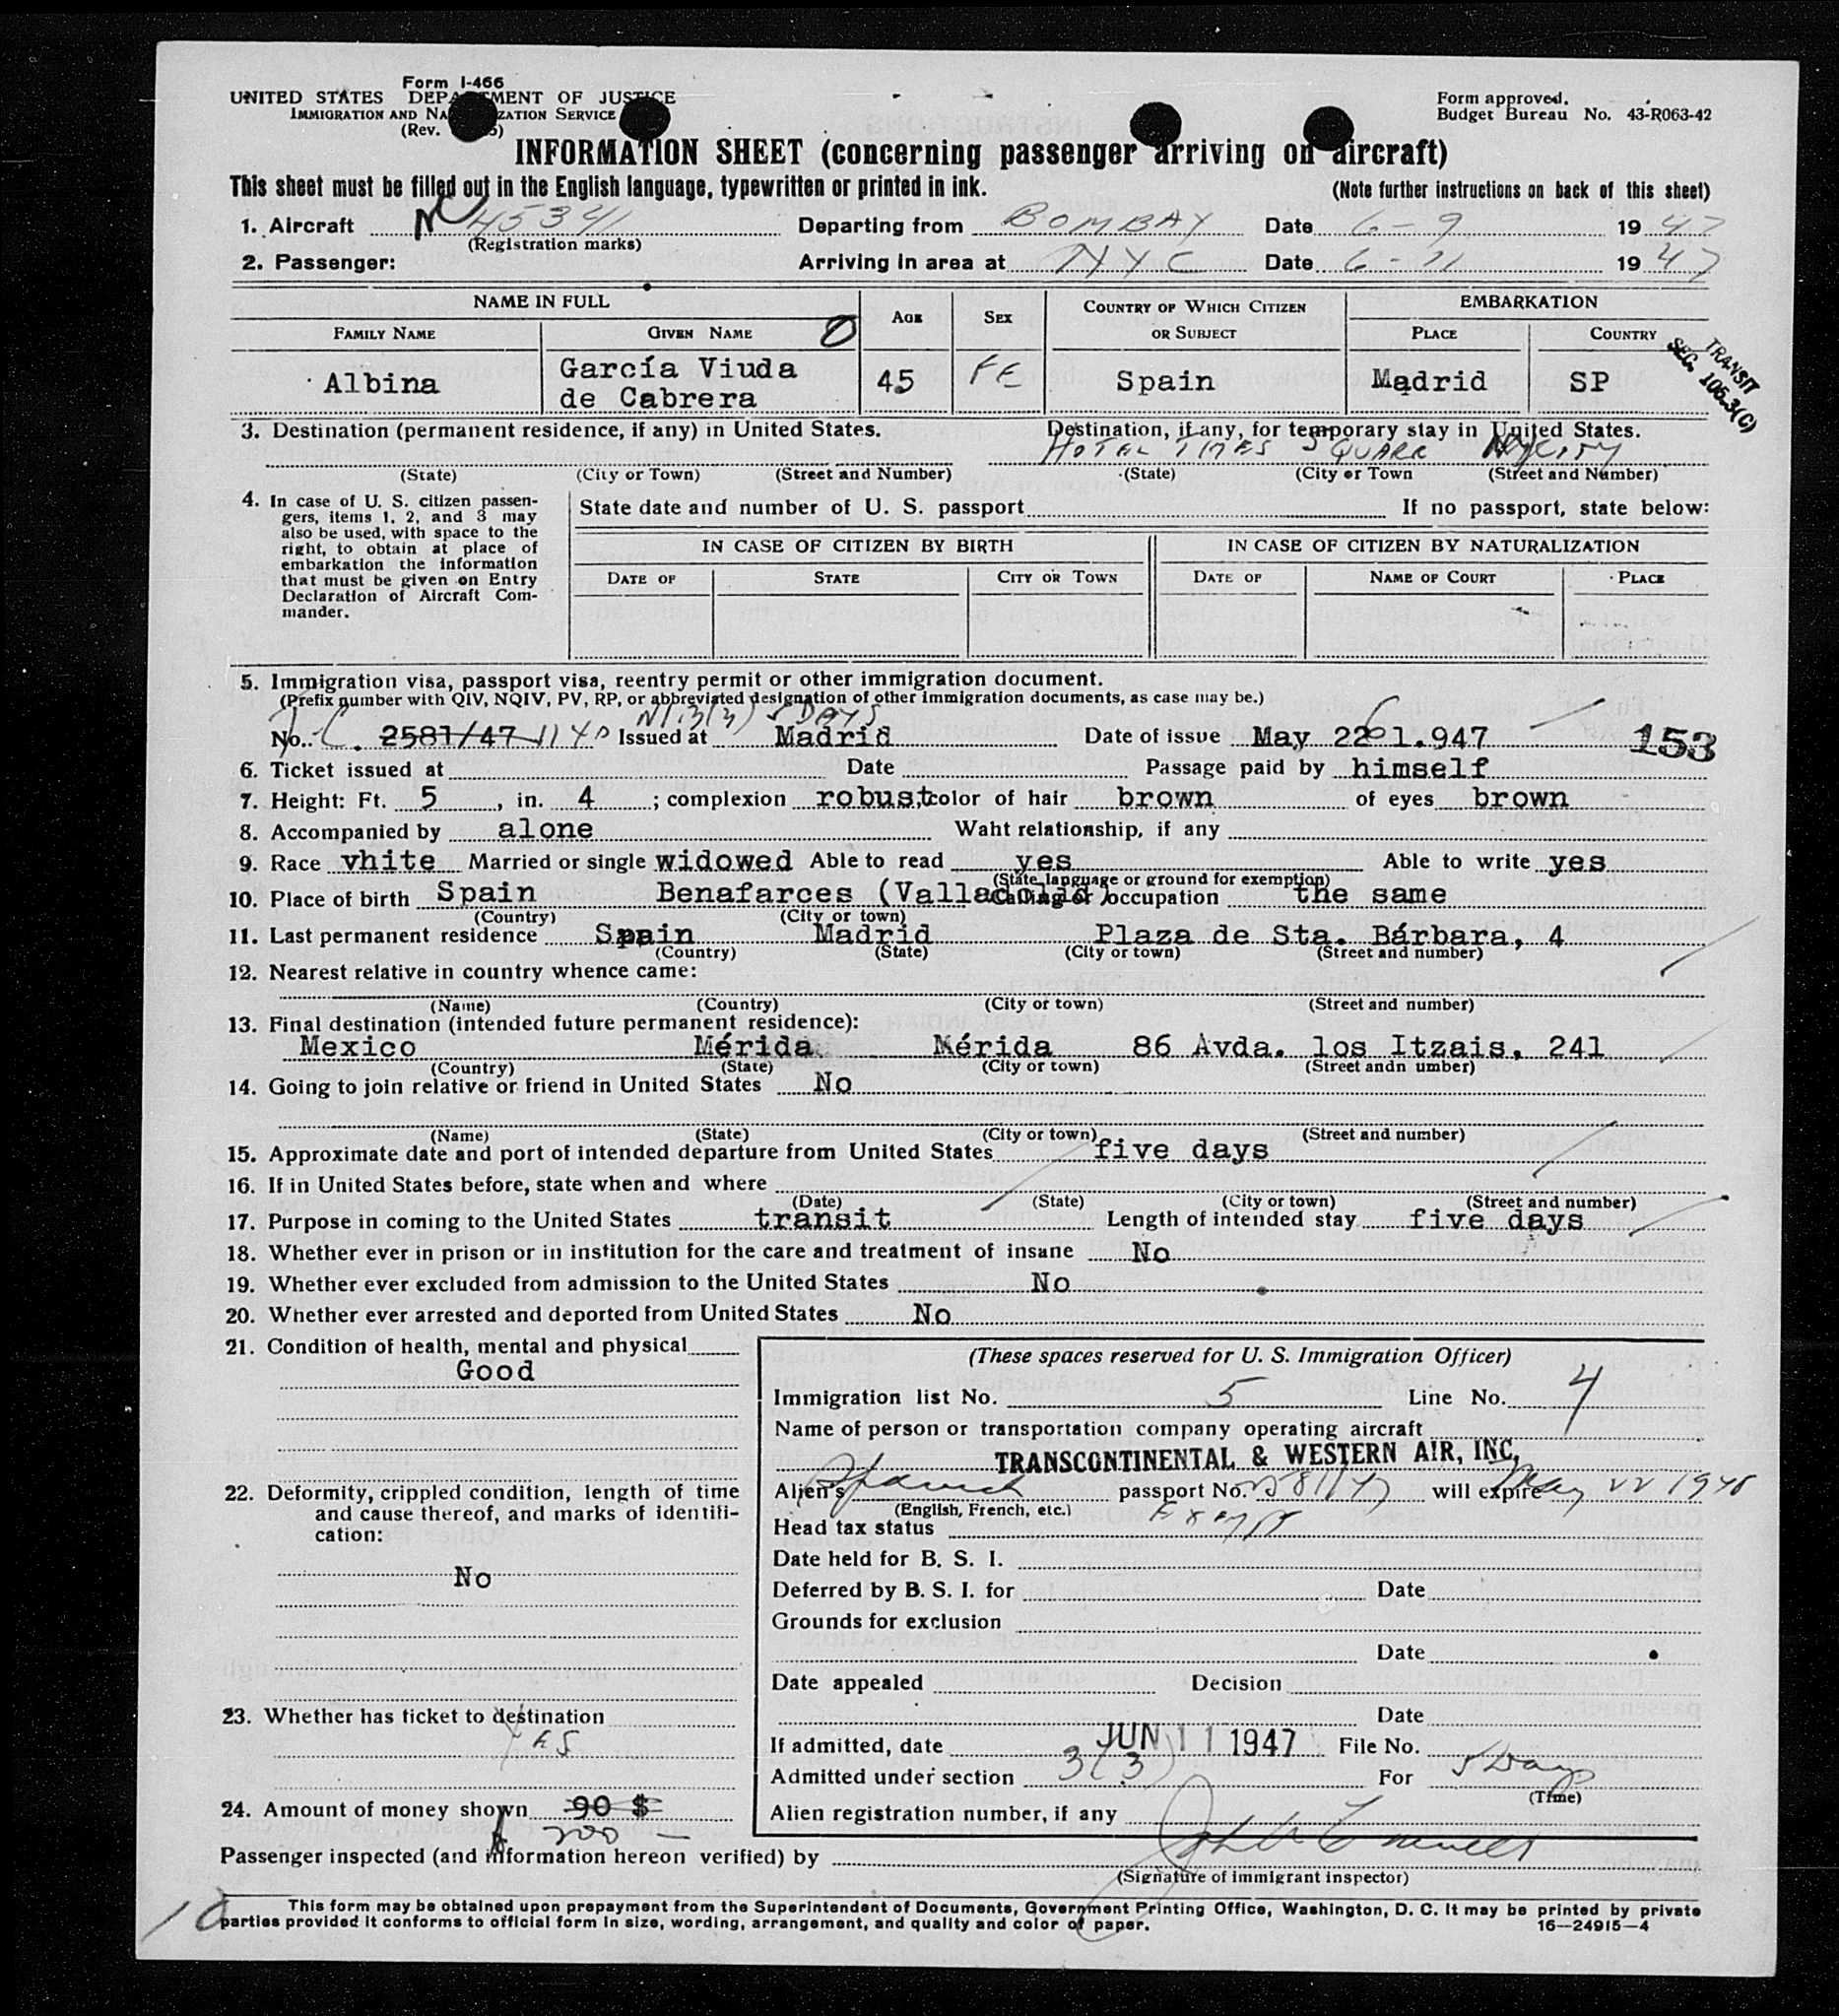 Form I-466
UNITED STATES DEPARTMENT OF JUSTICE
IMMIGRATION AND NATURALIZATION SERVICE
(Rev.
Form approved.
Budget Bureau No. 43-R063-42
INFORMATION SHEET (concerning passenger arriving on aircraft)
This sheet must be filled out in the English language, typewritten or printed in ink. (Note further instructions on back of this sheet)
1. Aircraft N 45341 Departing from BOMBAY Date 6-9 1947
(Registration marks)
2. Passenger: Arriving in area at NYC Date 6-11 1947
NAME IN FULL AGE SEX COUNTRY OF WHICH CITIZEN OR SUBJECT EMBARKATION
FAMILY NAME GIVEN NAME PLACE COUNTRY
TRANSIT
SEC. 105.3(C)
Albina García Viuda de Cabrera 45 FE Spain Madrid SP
3. Destination (permanent residence, if any) in United States. Destination, if any, for temporary stay in United States.
HOTEL TIMES SQUARE NY CITY
(State) (City or Town) (Street and Number) (State) (City or Town (Street and Number)
4. In case of U. S. citizen passen-
gers, items 1, 2, and 3 may
also be used, with space to the
right, to obtain at place of
embarkation the information
that must be given on Entry
Declaration of Aircraft Com-
mander.
State date and number of U. S. passport If no passport, state below:
IN CASE OF CITIZEN BY BIRTH IN CASE OF CITIZEN BY NATURALIZATION
DATE OF STATE CITY OR TOWN DATE OF NAME OF COURT PLACE
5. Immigration visa, passport visa, reentry permit or other immigration document.
(Prefix number with QIV, NQIV, PV, RP, or abbreviated designation of other immigration documents, as case may be.)
3(3) 5 DAYS
No. 2581/47 1140 Issued at Madrid Date of issue May 226 1.947 153
6. Ticket issued at Date Passage paid by himself
7. Height: Ft. 5, in. 4; complexion robust, color of hair brown of eyes brown
8. Accompanied by alone Waht relationship, if any
9. Race vhite Married or single widowed Able to read yes Able to write yes
(State language or ground for exemption)
10. Place of birth Spain Benafarces (Valladolid) Calling or occupation the same
(Country) (City or town)
11. Last permanent residence Spain Madrid Plaza de Sta. Bárbara, 4
(Country) (State) (City or town) (Street and number)
12. Nearest relative in country whence came:
(Name) (Country) (City or town) (Street and number)
13. Final destination (intended future permanent residence):
Mexico Mérida Mérida 86 Avda. los Itzais, 241
(Country) (State) (City or town) (Street andn umber)
14. Going to join relative or friend in United States No
(Name) (State) (City or town) (Street and number)
15. Approximate date and port of intended departure from United States five days
16. If in United States before, state when and where
(Date) (State) (City or town) (Street and number)
17. Purpose in coming to the United States transit Length of intended stay five days
18. Whether ever in prison or in institution for the care and treatment of insane No
19. Whether ever excluded from admission to the United States No
20. Whether ever arrested and deported from United States No
21. Condition of health, mental and physical
Good
22. Deformity, crippled condition, length of time
and cause thereof, and marks of identifi-
cation:
No
23. Whether has ticket to destination
YES
24. Amount of money shown 90 $
200 —
(These spaces reserved for U. S. Immigration Officer)
Immigration list No. 5 Line No. 4
Name of person or transportation company operating aircraft
TRANSCONTINENTAL & WESTERN AIR, INC.
Alien's Spanish passport No. 2581/47 will expire May 22 1948
(English, French, etc.)
Head tax status Exempt
Date held for B. S. I.
Deferred by B. S. I. for Date
Grounds for exclusion
Date
Date appealed Decision
Date
If admitted, date JUN 11 1947 File No.
Admitted under section 3(3) For 5 Days
(Time)
Alien registration number, if any
Passenger inspected (and information hereon verified) by
(Signature of immigrant inspector)
10
This form may be obtained upon prepayment from the Superintendent of Documents, Government Printing Office, Washington, D. C. It may be printed by private
parties provided it conforms to official form in size, wording, arrangement, and quality and color of paper. 16—24915-4